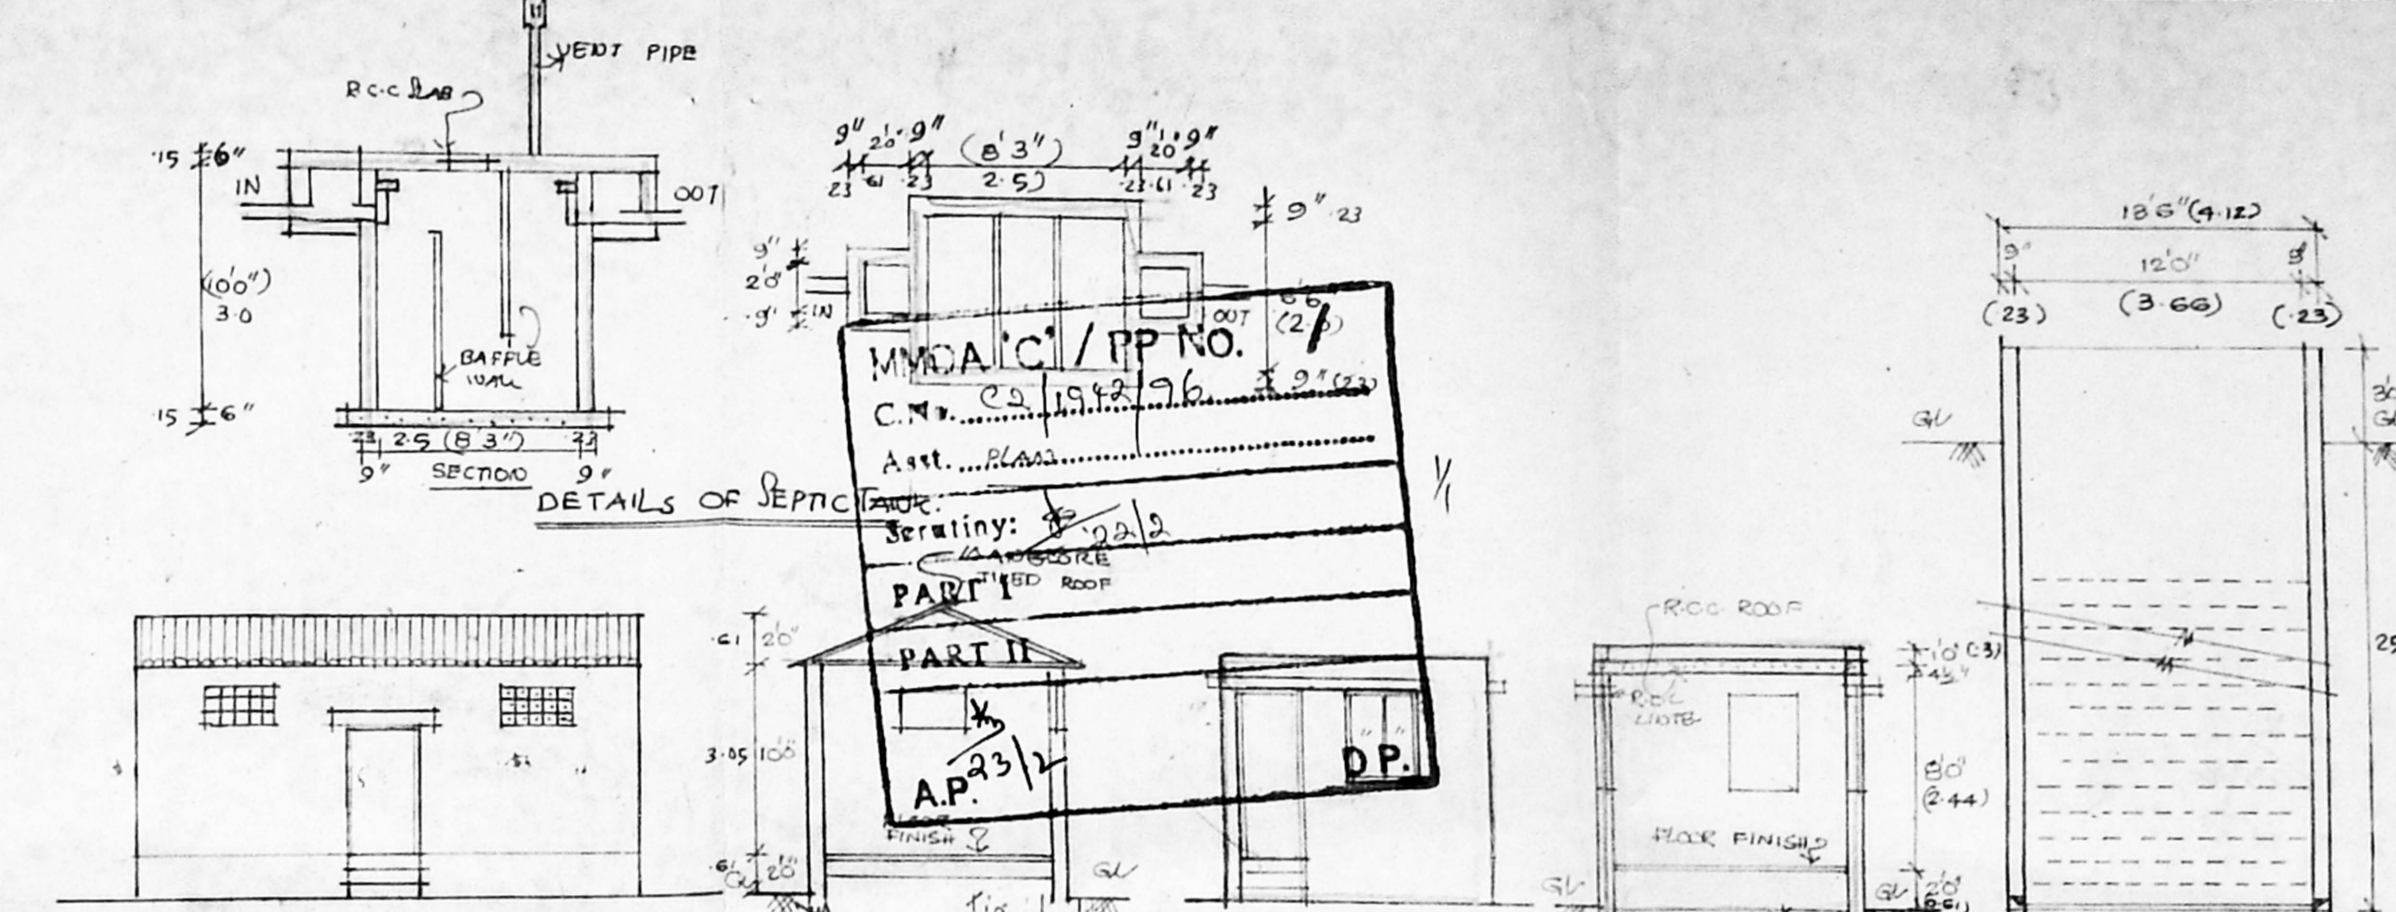 VENT PIPE
R.C.C SLAB
.15 6"
IN
OUT
(10'0")
3.0
BAFFLE
WALL
.15 6"
.23 2.5 (8'3") .23
9" SECTION 9"
DETAILS OF SEPTIC TANK.
9" 2'0" 9" (8'3") 9" 2'0" 9"
.23 .61 .23 2.5) .23 .61 .23
9" .23
9"
2'0"
9"
IN
OUT
6'6"
9" (23)
MMDA 'C' / PP NO.
C.No. C2/1942/96
Asst. PLAN
Scrutiny: 22/2
TILED ROOF
PART I
PART II
A.P. 23/2
D.P.
1/1
.61 2'0"
3.05 10'0"
.61 2'0"
GL
FINISH
GL
R.C.C ROOF
R.C.C
LINTEL
1'0" (.3)
4½"
8'0"
(2.44)
FLOOR FINISH
GL
GL
2'0"
(0.61)
13'6" (4.12)
9" 12'0" 9"
(.23) (3.66) (.23)
GL